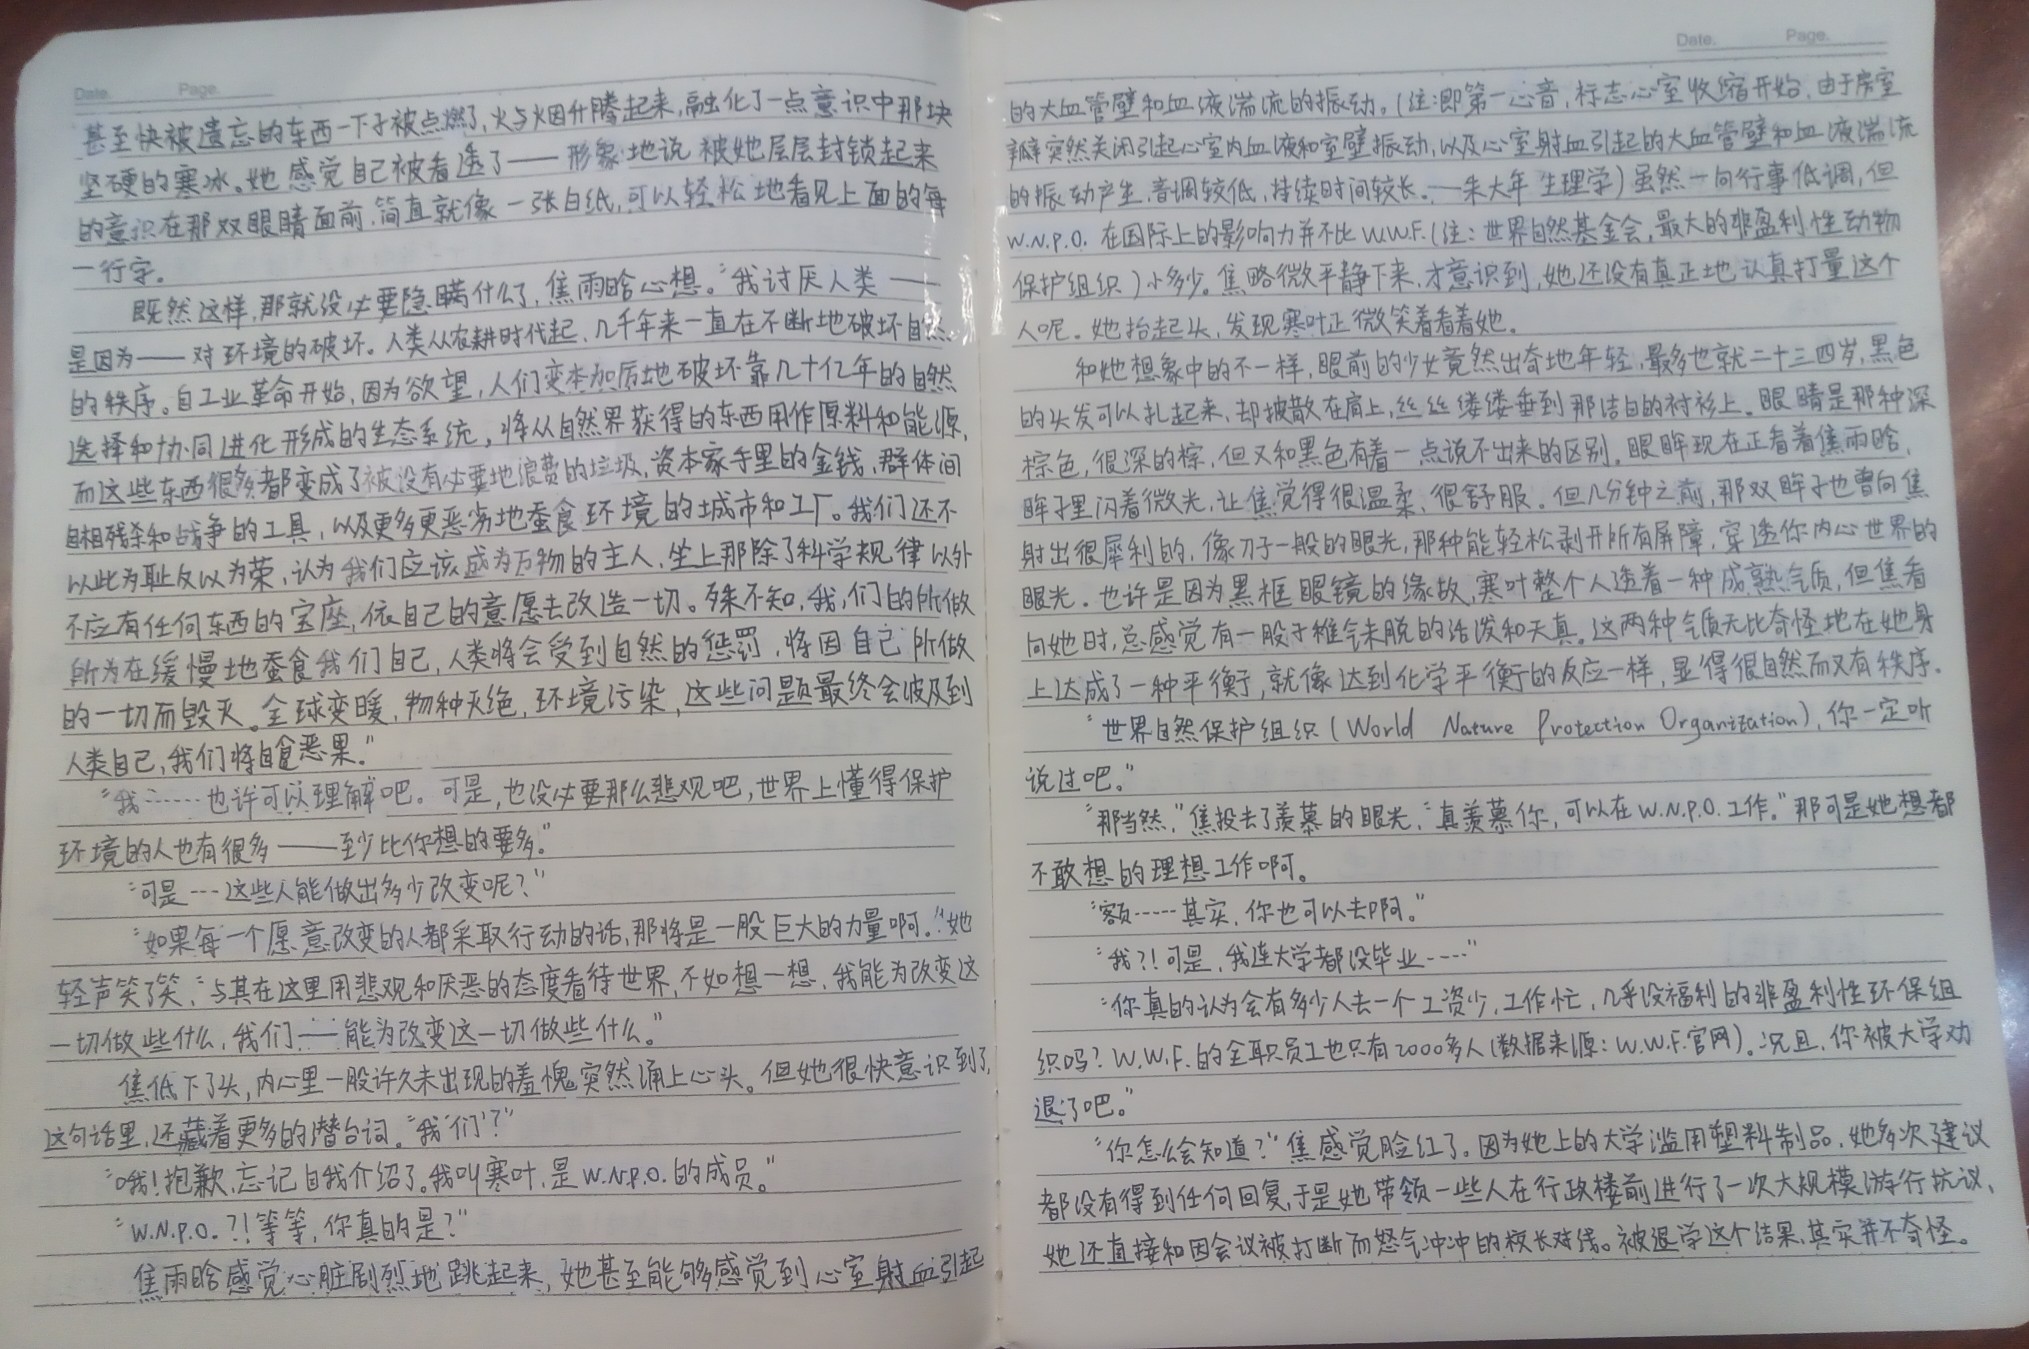 Date. Page.
甚至快被遗忘的东西一下子被点燃了,火与烟升腾起来,融化了一点意识中那块
坚硬的寒冰。她感觉自己被看透了——形象地说 被她层层封锁起来
的意识在那双眼睛面前,简直就像一张白纸,可以轻松地看见上面的每
一行字。
既然这样,那就没必要隐瞒什么了,焦雨晗心想。“我讨厌人类——
是因为——对环境的破坏。人类从农耕时代起,几千年来一直在不断地破坏自然
的秩序。自工业革命开始,因为欲望,人们变本加厉地破坏靠几十亿年的自然
选择和协同进化形成的生态系统,将从自然界获得的东西用作原料和能源,
而这些东西很多都变成了被没有必要地浪费的垃圾,资本家手里的金钱,群体间
自相残杀和战争的工具,以及更多更恶劣地蚕食环境的城市和工厂。我们还不
以此为耻反以为荣,认为我们应该成为万物的主人,坐上那除了科学规律以外
不应有任何东西的宝座,依自己的意愿去改造一切。殊不知,我们的所做
所为在缓慢地蚕食我们自己,人类将会受到自然的惩罚,将因自己所做
的一切而毁灭。全球变暖,物种灭绝,环境污染,这些问题最终会波及到
人类自己,我们将自食恶果。”
“我……也许可以理解吧。可是,也没必要那么悲观吧,世界上懂得保护
环境的人也有很多——至少比你想的要多。”
“可是……这些人能做出多少改变呢?”
“如果每一个愿意改变的人都采取行动的话,那将是一股巨大的力量啊。”她
轻声笑了笑,“与其在这里用悲观和厌恶的态度看待世界,不如想一想,我能为改变这
一切做些什么,我们——能为改变这一切做些什么。”
焦低下了头,内心里一股许久未出现的羞愧突然涌上心头。但她很快意识到了,
这句话里,还藏着更多的潜台词。“我‘们’?”
“哦!抱歉,忘记自我介绍了。我叫寒叶,是W.N.P.O.的成员。”
“W.N.P.O.?!等等,你真的是?”
焦雨晗感觉心脏剧烈地跳起来,她甚至能够感觉到心室射血引起
Date. Page.
的大血管壁和血液湍流的振动。(注:即第一心音,标志心室收缩开始,由于房室
瓣突然关闭引起心室内血液和室壁振动,以及心室射血引起的大血管壁和血液湍流
的振动产生,音调较低,持续时间较长。——朱大年 生理学)虽然一向行事低调,但
W.N.P.O.在国际上的影响力并不比W.W.F.(注:世界自然基金会,最大的非盈利性动物
保护组织)小多少。焦略微平静下来,才意识到,她还没有真正地,认真打量这个
人呢。她抬起头,发现寒叶正微笑着看着她。
和她想象中的不一样,眼前的少女竟然出奇地年轻,最多也就二十三四岁,黑色
的头发可以扎起来,却披散在肩上,丝丝缕缕垂到那洁白的衬衫上。眼睛是那种深
棕色,很深的棕,但又和黑色有着一点说不出来的区别。眼眸现在正看着焦雨晗,
眸子里闪着微光,让焦觉得很温柔,很舒服。但几分钟之前,那双眸子也曾向焦
射出很犀利的,像刀子一般的眼光,那种能轻松剥开所有屏障,穿透你内心世界的
眼光。也许是因为黑框眼镜的缘故,寒叶整个人透着一种成熟气质,但焦看
向她时,总感觉有一股子稚气未脱的活泼和天真。这两种气质无比奇怪地在她身
上达成了一种平衡,就像达到化学平衡的反应一样,显得很自然而又有秩序。
“世界自然保护组织(World Nature Protection Organization),你一定听
说过吧。”
“那当然,”焦投去了羡慕的眼光,“真羡慕你,可以在W.N.P.O.工作。”那可是她想都
不敢想的理想工作啊。
“额……其实,你也可以去啊。”
“我?!可是,我连大学都没毕业……”
“你真的认为会有多少人去一个工资少,工作忙,几乎没福利的非盈利性环保组
织吗?W.W.F.的全职员工也只有2000多人(数据来源:W.W.F.官网)。况且,你被大学劝
退了吧。”
“你怎么会知道?”焦感觉脸红了。因为她上的大学滥用塑料制品,她多次建议
都没有得到任何回复,于是她带领一些人在行政楼前进行了一次大规模游行抗议,
她还直接和因会议被打断而怒气冲冲的校长对线。被退学这个结果,其实并不奇怪。